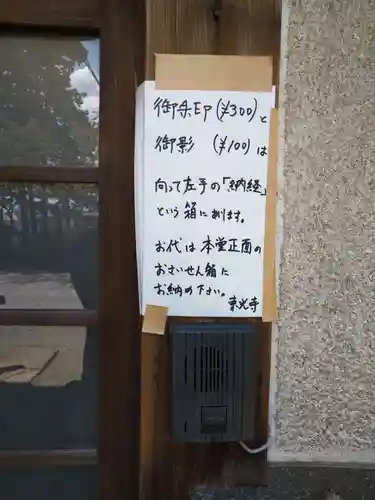 御朱印(¥300)と
御影 (¥100)は
向って左手の「納経」
という箱に有ります。
お代は本堂正面の
おさいせん箱に
お納め下さい。
東光寺